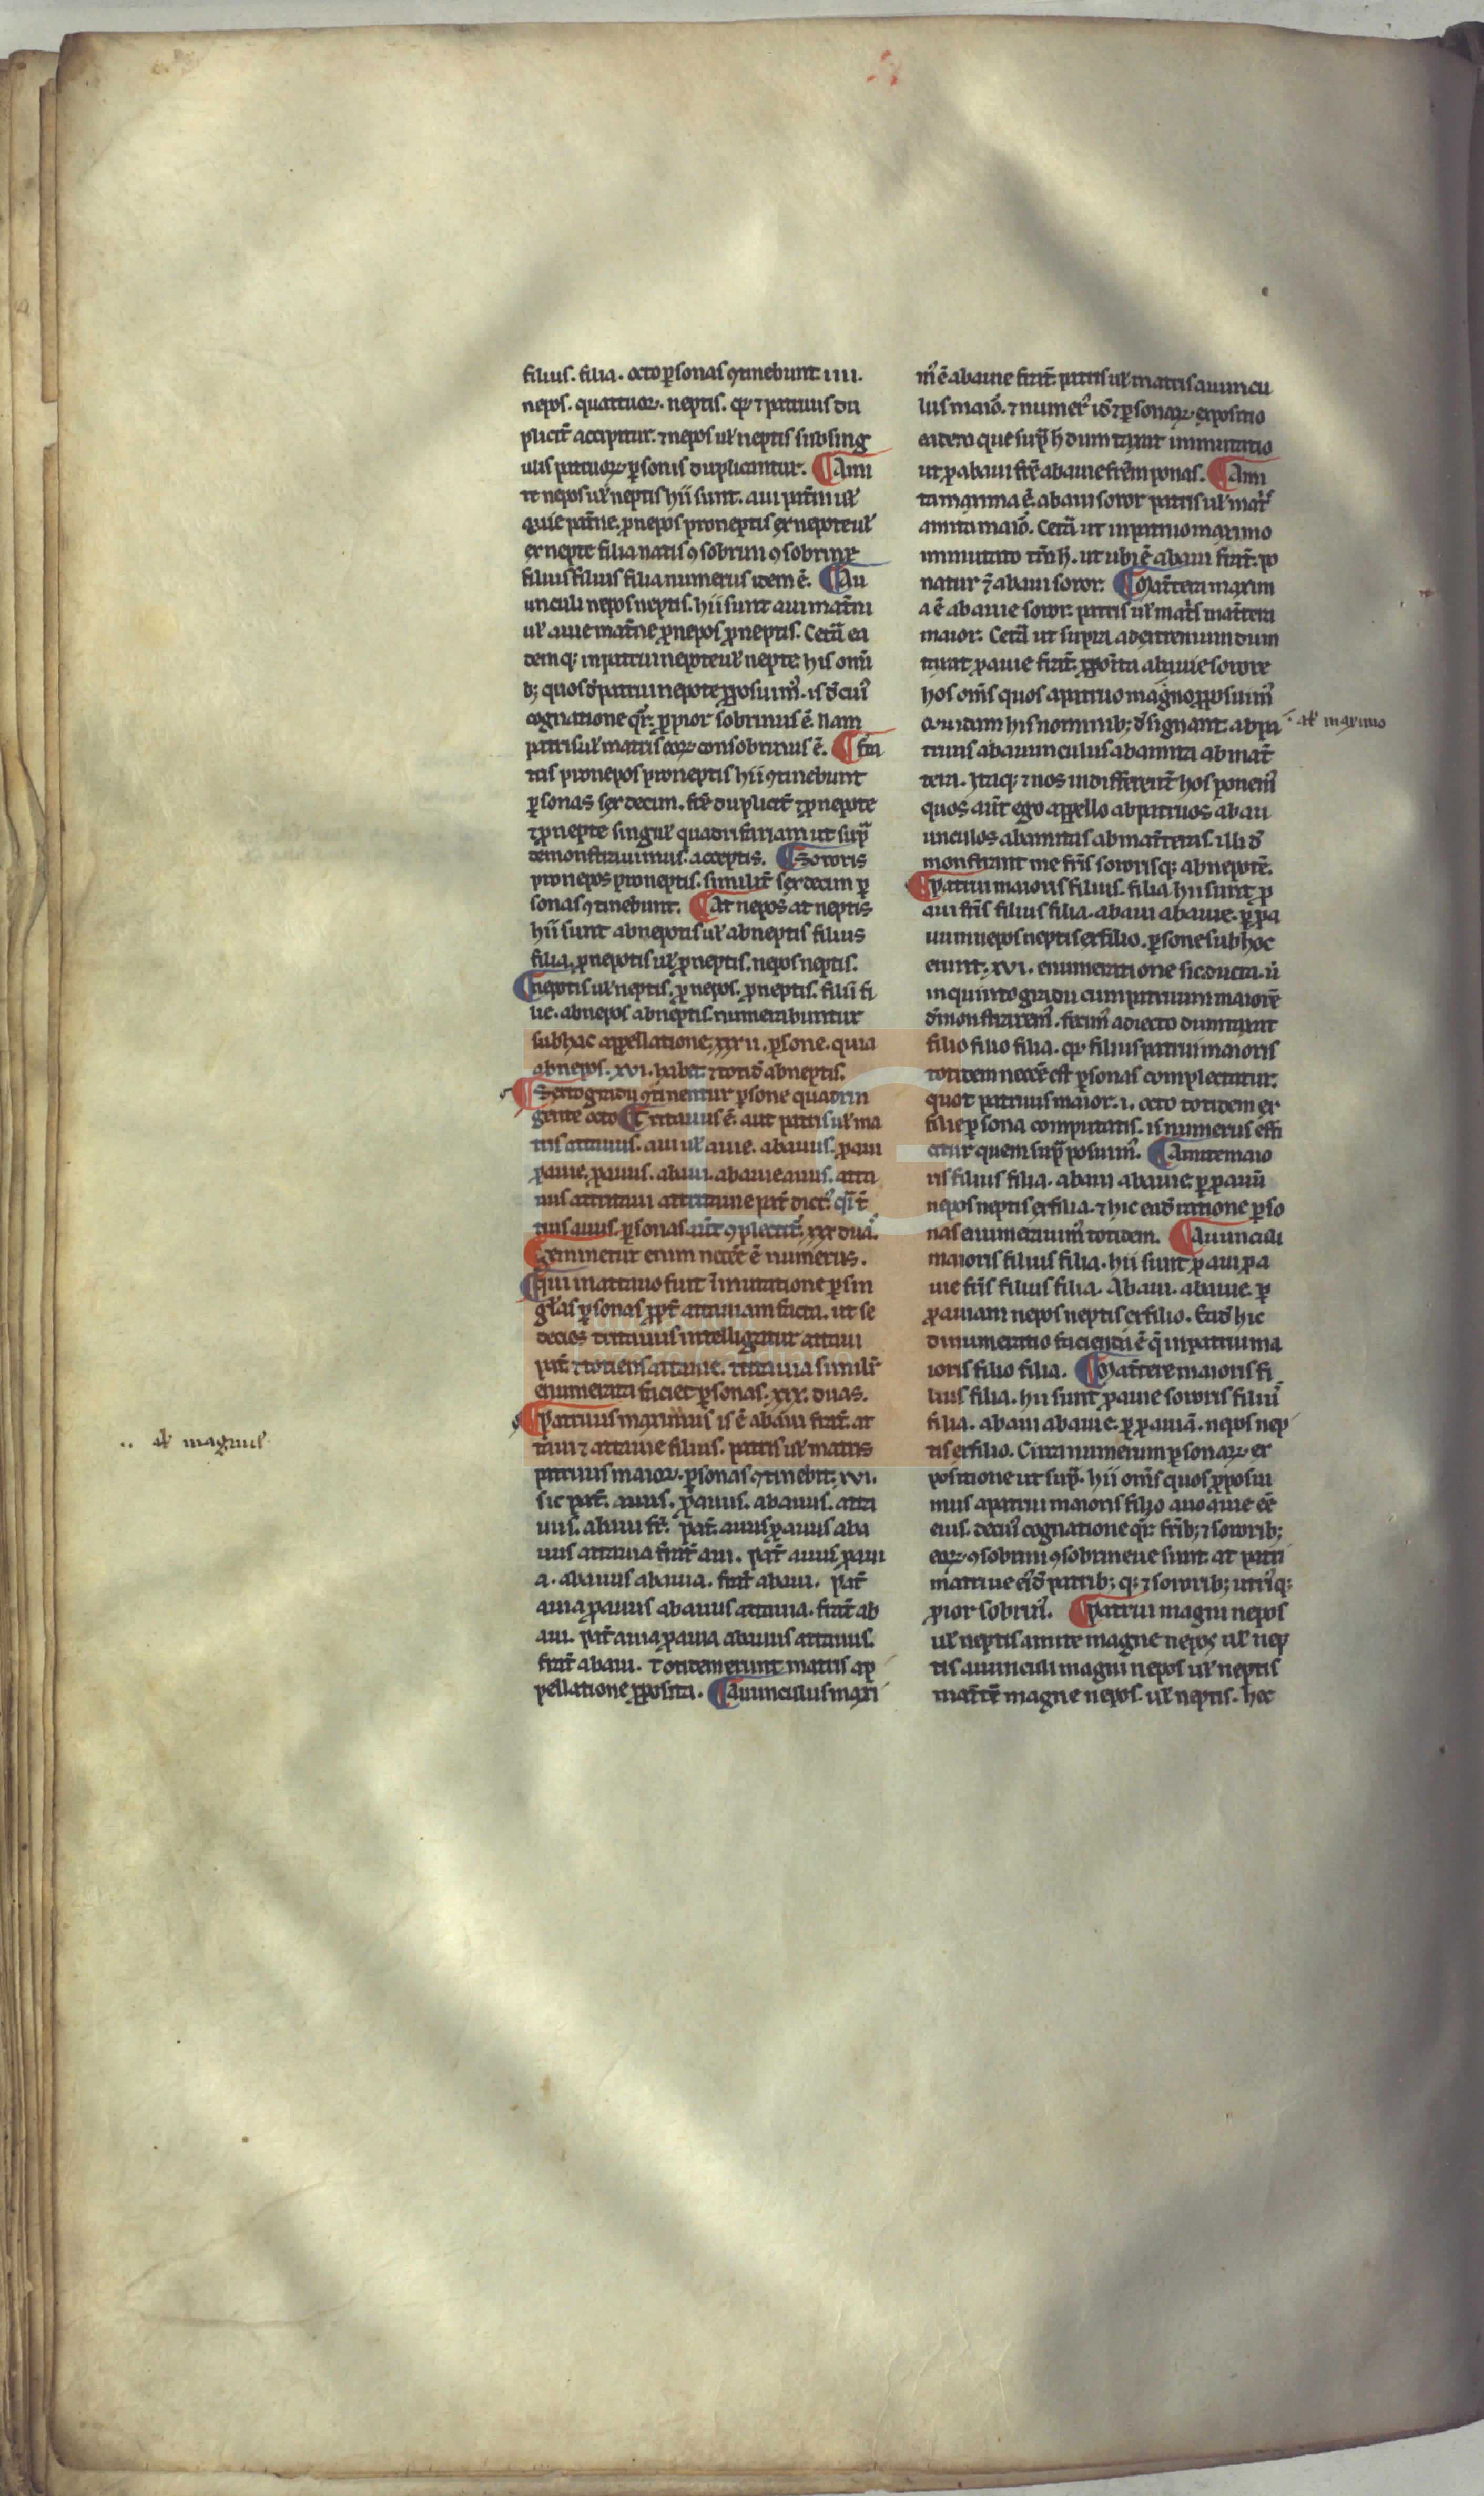 filius. filia. octo ꝑsonas ꝯtinebunt. iiii.
nepos. quattuor. neptis. qꝛ ⁊ patruus du
plicit̄ accipitur. ⁊ nepos uel neptis sub sing
ulis patruoꝝ ꝑsonis duplicantur. ¶ Ami
te nepos ul̄ neptis hii sunt. aui pat̄ni ul̄
auie pat̄ne. ꝓnepos proneptis ex nepote ul̄
ex nepte filia natis ꝯsobrini ꝯsobrine
filius filius filia numerus idem ē. ¶ Au
unculi nepos neptis. hii sunt aui mat̄ni
ul̄ auie mat̄ne ꝓnepos ꝓneptis. Cetā ea
dem qꝫ in patrui nepote ul̄ nepte. his omī
bꝫ quos d̄ patrui nepote ꝓposuimꝰ. is d̄ cuiꝰ
cognatione qr̄. ꝓpior sobrinus ē. Nam
patris ul̄ matris eoꝝ consobrinus ē. ¶ fr̄a
tris pronepos proneptis hii ꝯtinebunt
ꝑsonas sexdecim. fr̄e duplicit̄ ⁊ ꝓnepote
⁊ ꝓnepte singul̄ quadrifariam ut sup̄
demonstrauimus. acceptis. ¶ Sororis
pronepos proneptis. similit̄ sexdecim ꝑ
sonas ꝯtinebunt. ¶ At nepos at neptis
hii sunt abnepotis ul̄ abneptis filius
filia. ꝓnepotis ul̄ ꝓneptis. nepos neptis.
¶ neptis ul̄ neptis. ꝓnepos. ꝓneptis. filii fi
lie. abnepos abneptis. numerabuntur
sub hac appellatione. xxxii. ꝑsone. quia
abnepos. xvi. habet. ⁊ totid̄ abneptis.
¶ Sexto gradu ꝯtinentur ꝑsone quadrin
gente octo ¶ Tritauus ē. aut patris ul̄ ma
tris attauus. aui ul̄ auie. abauus. ꝓaui
ꝓauie. ꝓauus. abaui. abauie auus. atta
uus attritaui attritauie pat̄ dictꝰ. q̄i t̄
tius auus. ꝑsonas aūt ꝯplectit̄. xxx duā.
¶ Geminetur enim necc̄e ē numerus.
¶ qui in attauo fuit imutatione ꝑ sin
gl̄as ꝑsonas ꝓpt̄ attauiam facta. ut se
decies tritauus intelligatur attaui
pat̄ ⁊ totiens attauie. tritauia simili
enumerata faciet ꝑsonas. xxx. duas.
¶ Patruus maximus is ē abaui frat̄. at
taui ⁊ attauie filius. patris ul̄ matris
patruus maior. ꝑsonas ꝯtinebit. xvi.
sic pat̄. auus. ꝓauus. abauus. atta
uus. abaui fr̄. pat̄ auus ꝓauus aba
uus attauia frat̄ aui. pat̄ auus ꝓaui
a. abauus abauia. frat̄ abaui. pat̄
auia ꝓauus abauus attauia. frat̄ ab
aui. pat̄ auia ꝓauia abauus attauus.
frat̄ abaui. Totidem erunt matris ap
pellatione ꝓposita. ¶ Auunculus maxi
.. al̄ magnus.
mꝰ ē abauie frat̄. patris ul̄ matris auuncu
lus maiō. ⁊ numerꝰ id̄ ⁊ ꝑsonaꝝ expositio
eadem que sup̄ h dumtaxat immutatio
ut ꝓ abaui fr̄e abauie fr̄em ponas. ¶ Ami
ta maxima ē. abaui soror patris ul̄ matꝰs
amita maiō. Cetā ut in patruo maximo
immutato tm̄ h. ut ubi ē abaui frat̄. po
natur ē abaui soror. ¶ Mat̄tera maxim
a ē abauie soror. patris ul̄ mat̄s mat̄tera
maior. Cetā ut supra ad extremum dum
taxat ꝓ auie frat̄. ꝓposita abauie sorore
hos om̄s quos a patruo magno ꝓposuimꝰ
quidam his nominibꝫ d̄signant. ab pa
truus ab auunculus ab amita ab mat̄
tera. Itaqꝫ ⁊ nos indifferent̄ hos ponemꝰ
quos aūt ego appello ab patruos ab au
unculos ab amitas ab mat̄teras. illi d̄
monstrant me fr̄is sororisqꝫ abnepotē.
¶ Patrui maioris filius. filia. hii sunt ꝓ
aui fr̄is filius filia. abaui abauie. ꝑ ꝓa
uum nepos neptis ex filio. ꝑsone sub hoc
erunt. xvi. enumeratione sic ducta. ū
in quinto gradu cum patruum maiorē
d̄monstraremꝰ. fecimꝰ adiecto dumtaxat
filio filio filia. qꝛ filius patrui maioris
totidem necc̄e est ꝑsonas complectatur.
quot patruus maior. i. octo totidem ex
filie ꝑsona computatis. is numerus effi
citur quem sup̄ posuimꝰ. ¶ Amite maio
ris filius filia. abaui abauie. ꝑ ꝓauū
nepos neptis ex filia. ⁊ hic ead̄ ratione ꝑso
nas enumerauimꝰ totidem. ¶ Auunculi
maioris filius filia. hii sunt ꝓaui ꝓa
uie fr̄is filius filia. Abaui. abauie. ꝑ
ꝓauiam nepos neptis ex filio. Ead̄ hic
dinumeratio facienda ē q̄ in patrui ma
ioris filio filia. ¶ Mat̄tere maioris fi
lius filia. hii sunt ꝓauie sororis filiꝰ
filia. abaui abauie. ꝑ ꝓauiā. nepos nep
tis ex filio. Circa numerum ꝑsonaꝝ ex
positione ut sup̄. hii om̄s quos ꝓposui
mus a patrui maioris filio auo auie ē
eius. de cuiꝰ cognatione qr̄. fr̄ibꝫ ⁊ sororibꝫ
eoꝝ ꝯsobrini ꝯsobrineue sunt. at patri
matriue eid̄ patribꝫ qꝫ ⁊ sororibꝫ utriqꝫ
ꝓior sobrinꝰ. ¶ Patrui magni nepos
ul̄ neptis amite magne nepos ul̄ nep
tis auunculi magni nepos ul̄ neptis
mat̄t̄e magne nepos. ul̄ neptis. hec
al̄ maximo